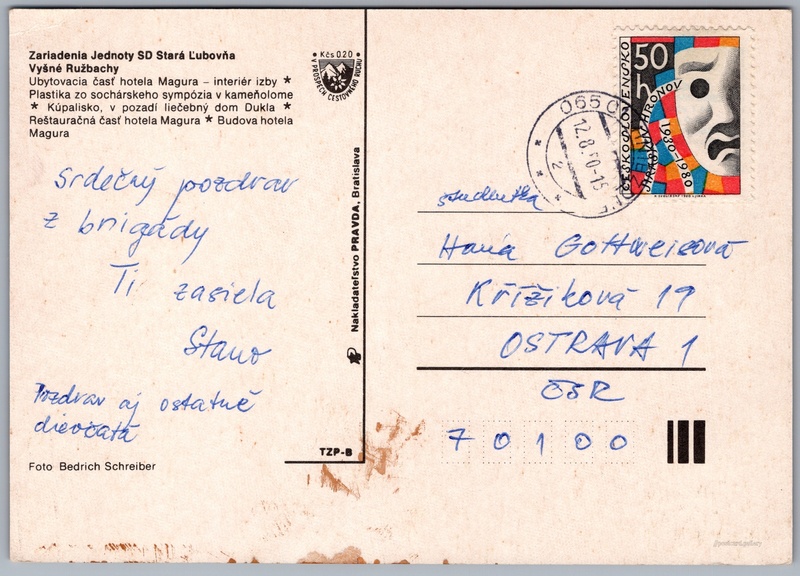 Zariadenia Jednoty SD Stará Ľubovňa
Vyšné Ružbachy
Ubytovacia časť hotela Magura – interiér izby *
Plastika zo sochárskeho sympózia v kameňolome
* Kúpalisko, v pozadí liečebný dom Dukla *
Reštauračná časť hotela Magura * Budova hotela
Magura
• Kčs 0.20 •
V PROSPECH CESTOVNÉHO RUCHU
Srdečný pozdrav
z brigády
Ti zasiela
Stano
Pozdrav aj ostatné
dievčatá
Foto Bedrich Schreiber
TZP-B
Nakladateľstvo PRAVDA, Bratislava
50
h
ČESKOSLOVENSKO
JIRÁSKŮV HRONOV
1930–1980
12.8.80-15
2
studentka
Hana Gottweisová
Křižíková 19
OSTRAVA 1
ČSR
70100